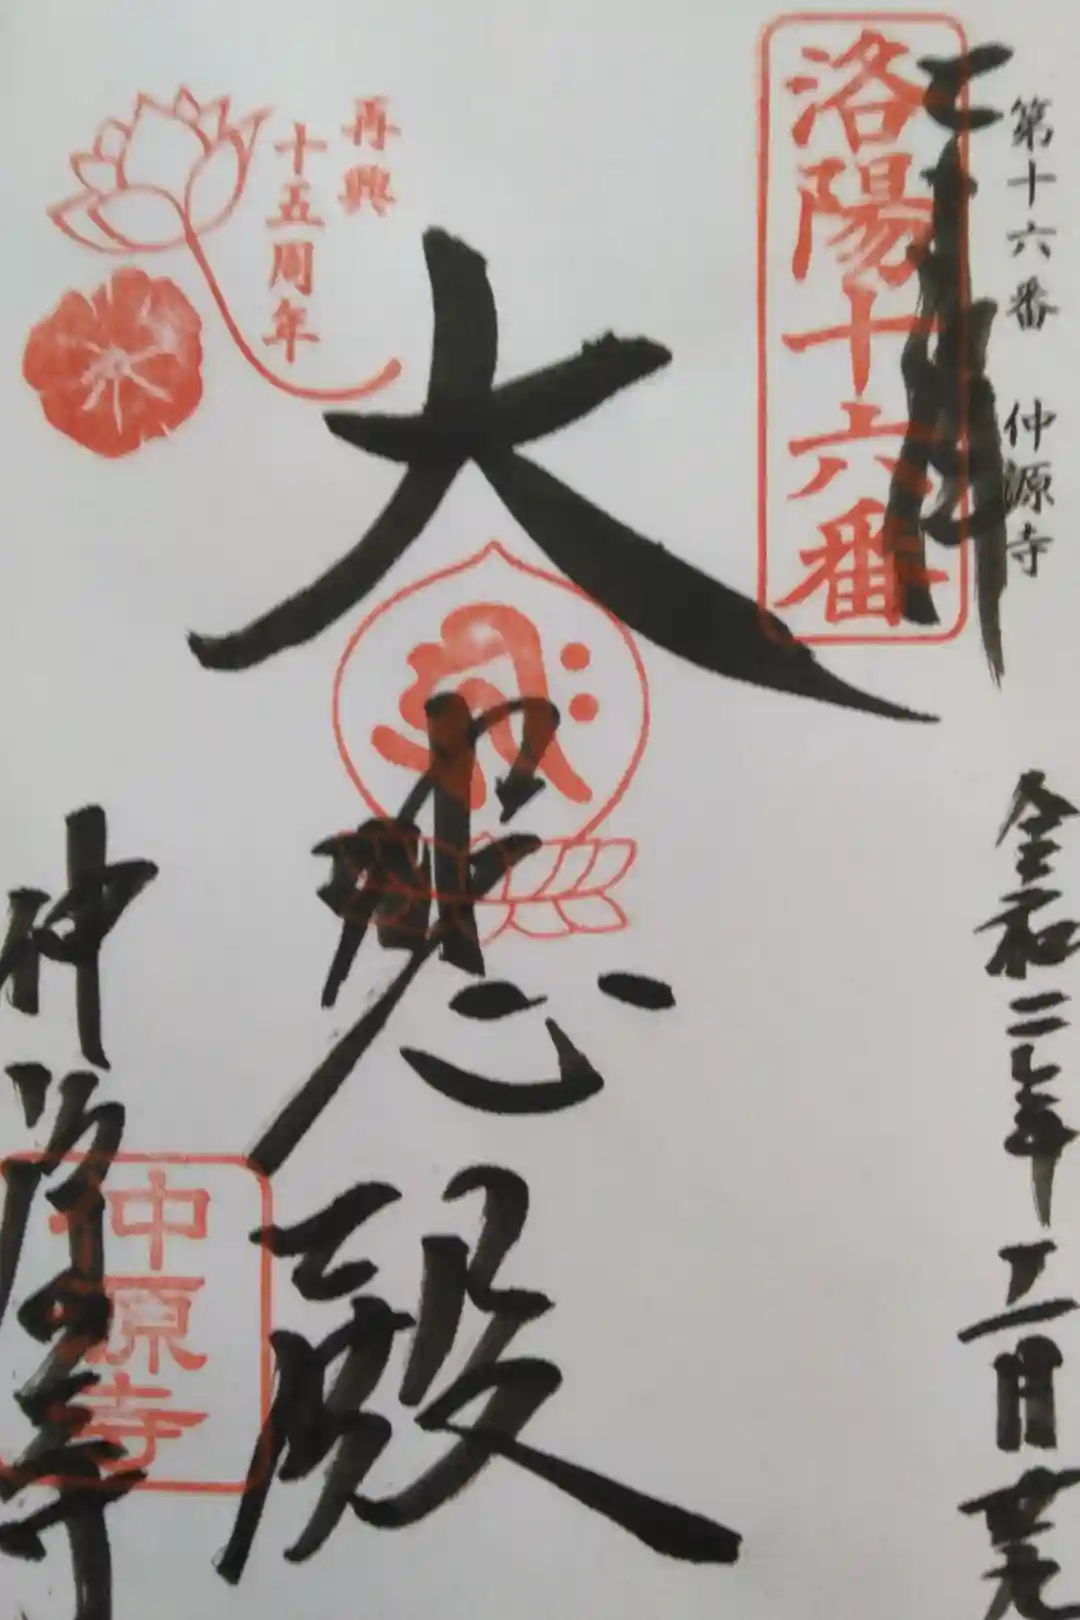 第十六番 仲源寺
奉拝
洛陽十六番
令和二年十二月廿九
大悲殿
再興
十五周年
仲源寺
仲源寺